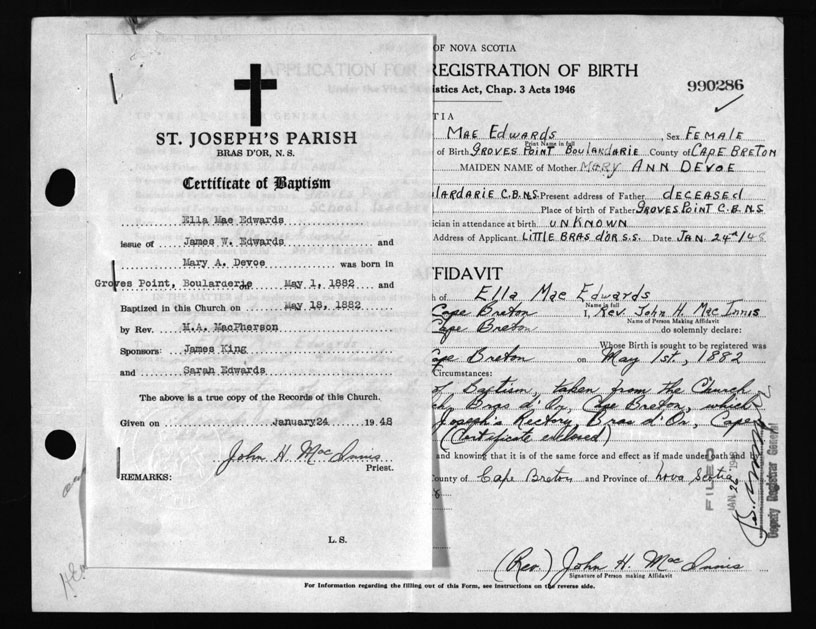 ST. JOSEPH'S PARISH
BRAS D'OR, N. S.
Certificate of Baptism
Ella Mae Edwards
issue of James W. Edwards and
Mary A. Devoe was born in
Groves Point, Boularderie on May 1, 1882 and
Baptized in this Church on May 18, 1882
by Rev. M.A. MacPherson
Sponsors: James King
and Sarah Edwards
The above is a true copy of the Records of this Church.
Given on January 24 1948
John H. MacInnis
Priest.
REMARKS:
L. S.
OF NOVA SCOTIA
APPLICATION FOR REGISTRATION OF BIRTH
istics Act, Chap. 3 Acts 1946
990286
TIA
MAE EDWARDS , Sex FEMALE
Print Name in full
of Birth GROVES POINT BOULARDARIE County of CAPE BRETON
MAIDEN NAME of Mother MARY ANN DEVOE
LARDARIE C.B.N.S. Present address of Father DECEASED
Place of birth of Father GROVES POINT C.B.N.S
ician in attendance at birth UNKNOWN
Address of Applicant LITTLE BRAS D'OR S.S. Date JAN. 24th/48
FFIDAVIT
h of Ella Mae Edwards
Name in full
Cape Breton I, Rev. John H. MacInnis
Name of Person Making Affidavit
Cape Breton do solemnly declare:
Whose Birth is sought to be registered was
ape Breton on May 1st, 1882
Circumstances:
of Baptism, taken from the Church
ch, Bras d'Or, Cape Breton, which
Joseph's Rectory, Bras d'Or, Cape
(Certificate enclosed)
and knowing that it is of the same force and effect as if made under oath and by
ounty of Cape Breton and Province of Nova Scotia
FILED
JAN. 26 194
Deputy Registrar General
(Rev.) John H. MacInnis
Signature of Person making Affidavit
For Information regarding the filling out of this Form, see instructions on the reverse side.